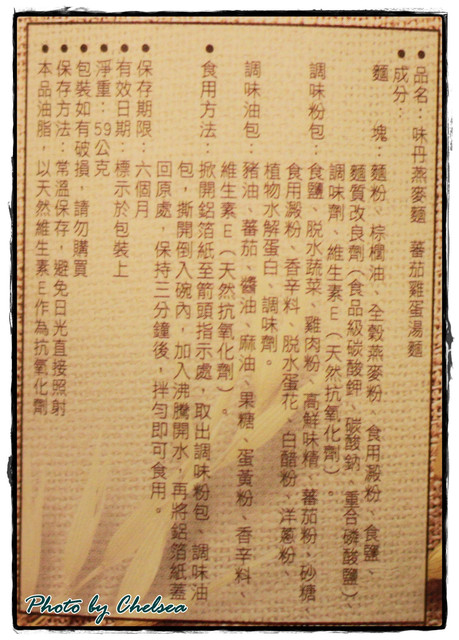 ●品名：味丹燕麥麵　蕃茄雞蛋湯麵
●成分：
麵　　塊：麵粉、棕櫚油、全穀燕麥粉、食用澱粉、食鹽、
麵質改良劑（食品級碳酸鉀、碳酸鈉、重合磷酸鹽）、
調味劑、維生素E（天然抗氧化劑）。
調味粉包：食鹽、脫水蔬菜、雞肉粉、高鮮味精、蕃茄粉、砂糖
食用澱粉、香辛料、脫水蛋花、白醋粉、洋蔥粉、
植物水解蛋白、調味劑。
調味油包：豬油、蕃茄、醬油、麻油、果糖、蛋黃粉、香辛料、
維生素E（天然抗氧化劑）。
●食用方法：掀開鋁箔紙至箭頭指示處，取出調味粉包、調味油
包，撕開倒入碗內，加入沸騰開水，再將鋁箔紙蓋
回原處，保持三分鐘後，拌勻即可食用。
●保存期限：六個月
●有效日期：標示於包裝上
●淨重：59公克
●包裝如有破損，請勿購買
●保存方法：常溫保存，避免日光直接照射
●本品油脂，以天然維生素E作為抗氧化劑
Photo by Chelsea